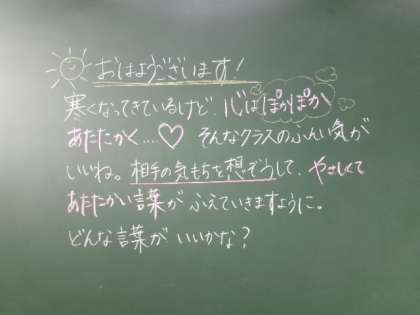 おはようございます!
寒くなってきているけど、心はぽかぽか
あたたかく....♡ そんなクラスのふんい気が
いいね。相手の気もちを想ぞうして、やさしくて
あたたかい言葉が ふえていきますように。
どんな言葉が いいかな?